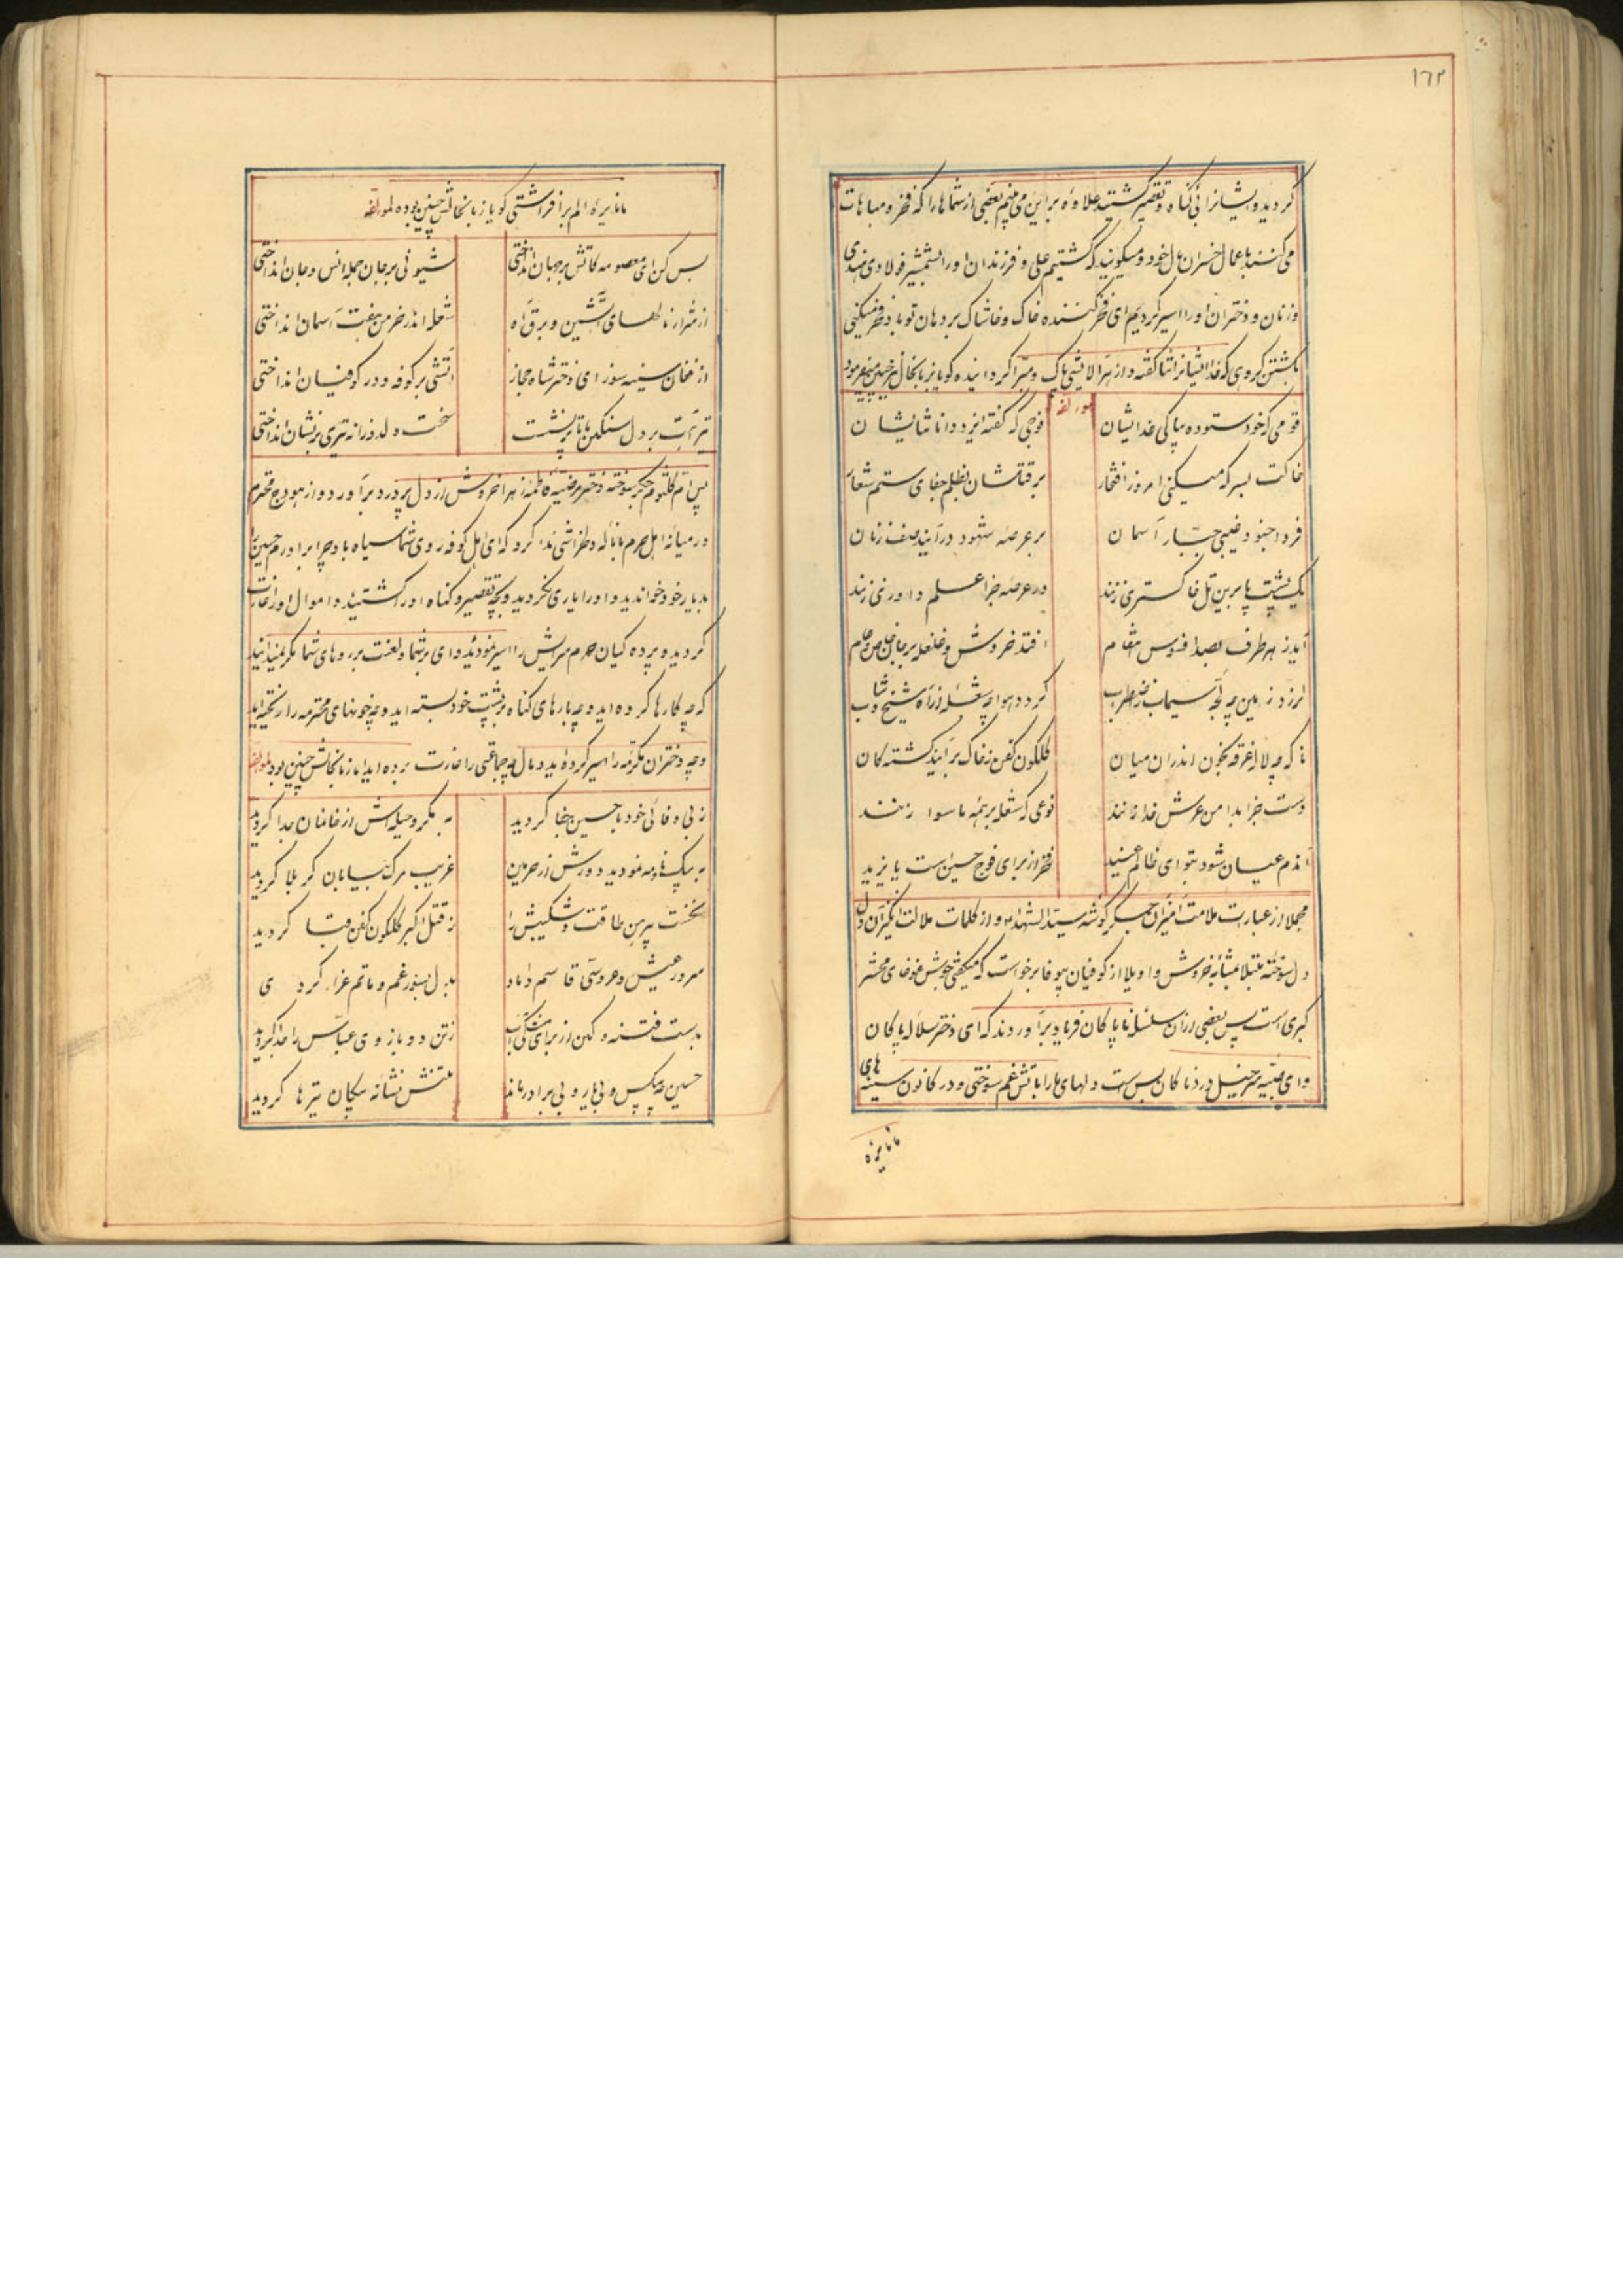 ١٦٢
کردید و ایشانرا بی کناه و تقصیر کشتید علاوه براین می بینم بعضی از شماها را که فخر و مباهات
می کنند باعمال خسران مال خود و میکویند که کشتیم علی و فرزندان او را بشمشیر فولادی هندی
و زنان و دختران او را اسیر کردیم ای فخر کننده خاک و خاشاک بر دهان تو باد فخر میکنی
بکشتن کروهی که خدا ایشانرا ثنا کفته و از هر آلایشی پاک و مبرا کردانیده کویا زبانحال
لمؤلفه
قومی که خود ستوده بپاکی خدایشان
فوجی که کفته ایزد دانا ثنایشان
خاکت بسر که میکنی امروز افتخار
بر قتلشان بظلم جفای ستم شعار
فردا جنود غیبی جبار آسمان
بر عرصه شهود درآیند صف زنان
یک پشت پا برین تل خاکستری زنند
در عرصه جزا علم داوری زنند
آید ز هر طرف بصدا
افتد خروش و غلغله بر جان خاص و عام
لرزد زمین چو لجه سیماب ز اضطراب
کردد هوا چو شعله ز آه شیخ و شاب
ناکه چو لاله غرقه بخون اندران میان
کلکون کفن ز خاک برآیند کشته کان
دست جزا بدامن عرش خدا زنند
نوعی که شعله بر همه ماسوا زنند
آندم عیان شود بتو ای ظالم عنید
فخر از برای فوج حسین است یا یزید
مجملا از عبارت ملامت آمیز آن جکرکوشه سید الشهداء و از کلمات ملالت انکیز آن دل
دل سوخته مبتلا بمثابه خروش و اویلا از کوفیان بیوفا برخواست که میکفتی جوش غوغای محشر
کبری است پس بعضی از آن سلسله ناپاکان فریاد برآوردند که ای دختر سلاله پاکان
و ای صبیه سرخیل دردناکان بس است دلهای ما را باتش غم سوختی و در کانون سینه های
ما نایره
ما نایره الم برافراشتی کویا زبانحالش چنین بوده لمؤلفه
بس کن ای معصومه کاتش بر جهان انداختی
شیونی بر جان جمله انس و جان انداختی
از شرار نالهای آتشین و برق آه
شعله اندر خرمن هفت آسمان انداختی
از فغان سینه سوز ای دختر شاه حجاز
آتشی بر کوفه و در کوفیان انداختی
تیر آهت بر دل سنکین ما تا پر نشست
سخت و دلدوزانه تیری بر نشان انداختی
پس ام کلثوم جکر سوخته دختر مرضیه فاطمه زهرا خروش از دل پر درد برآورد و از هودج محترم
در میانه اهل حرم با ناله دلخراشی ندا کرد که ای اهل کوفه روی شما سیاه باد چرا برادرم حسین را
بدیار خود خواندید و او را یاری نکردید و بچه تقصیر و کناه او را کشتید و اموال او را غارت
کردید و پرده کیان حرم سرایش را اسیر نمودید وای بر شما و لعنت بر روهای شما مکر نمیدانید
که چه کارها کرده اید و چه بارهای کناه بر پشت خود بسته اید و چه خونهای محترمه را ریخته اید
و چه دختران مکرمه را اسیر کرده اید و مال چه جماعتی را غارت برده اید اما زبانحالش چنین بود لمؤلفه
ز بی وفائی خود با حسین جفا کردید
به مکر و حیله اش از خانمان جدا کردید
به پیک نامه نمودید دورش از حرمین
غریب مرک بیابان کربلا کردید
نخست پیرهن طاقت و شکیبش را
ز قتل اکبر کلکون کفن قبا کردید
سرور عیش و عروسی قاسم داماد
بدل بسوز غم و ماتم عزا کردی
بدست فتنه و کین از برای مشک آب
ز تن دو بازوی عباس را جدا کردید
حسین چه بیکس و بی یار و بی برادر ماند
تنش نشانه پیکان تیرها کردید